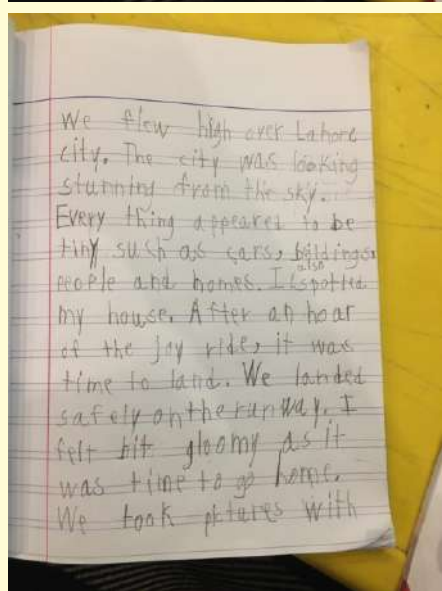 We flew high over Lahore
city. The city was looking
stunning from the sky.
Every thing appeared to be
tiny such as cars, bildings,
people and homes. I also spotted
my house. After an hoar
of the joy ride, it was
time to land. We landed
safely on the runway. I
felt bit gloomy as it
was time to go home.
We took pictures with